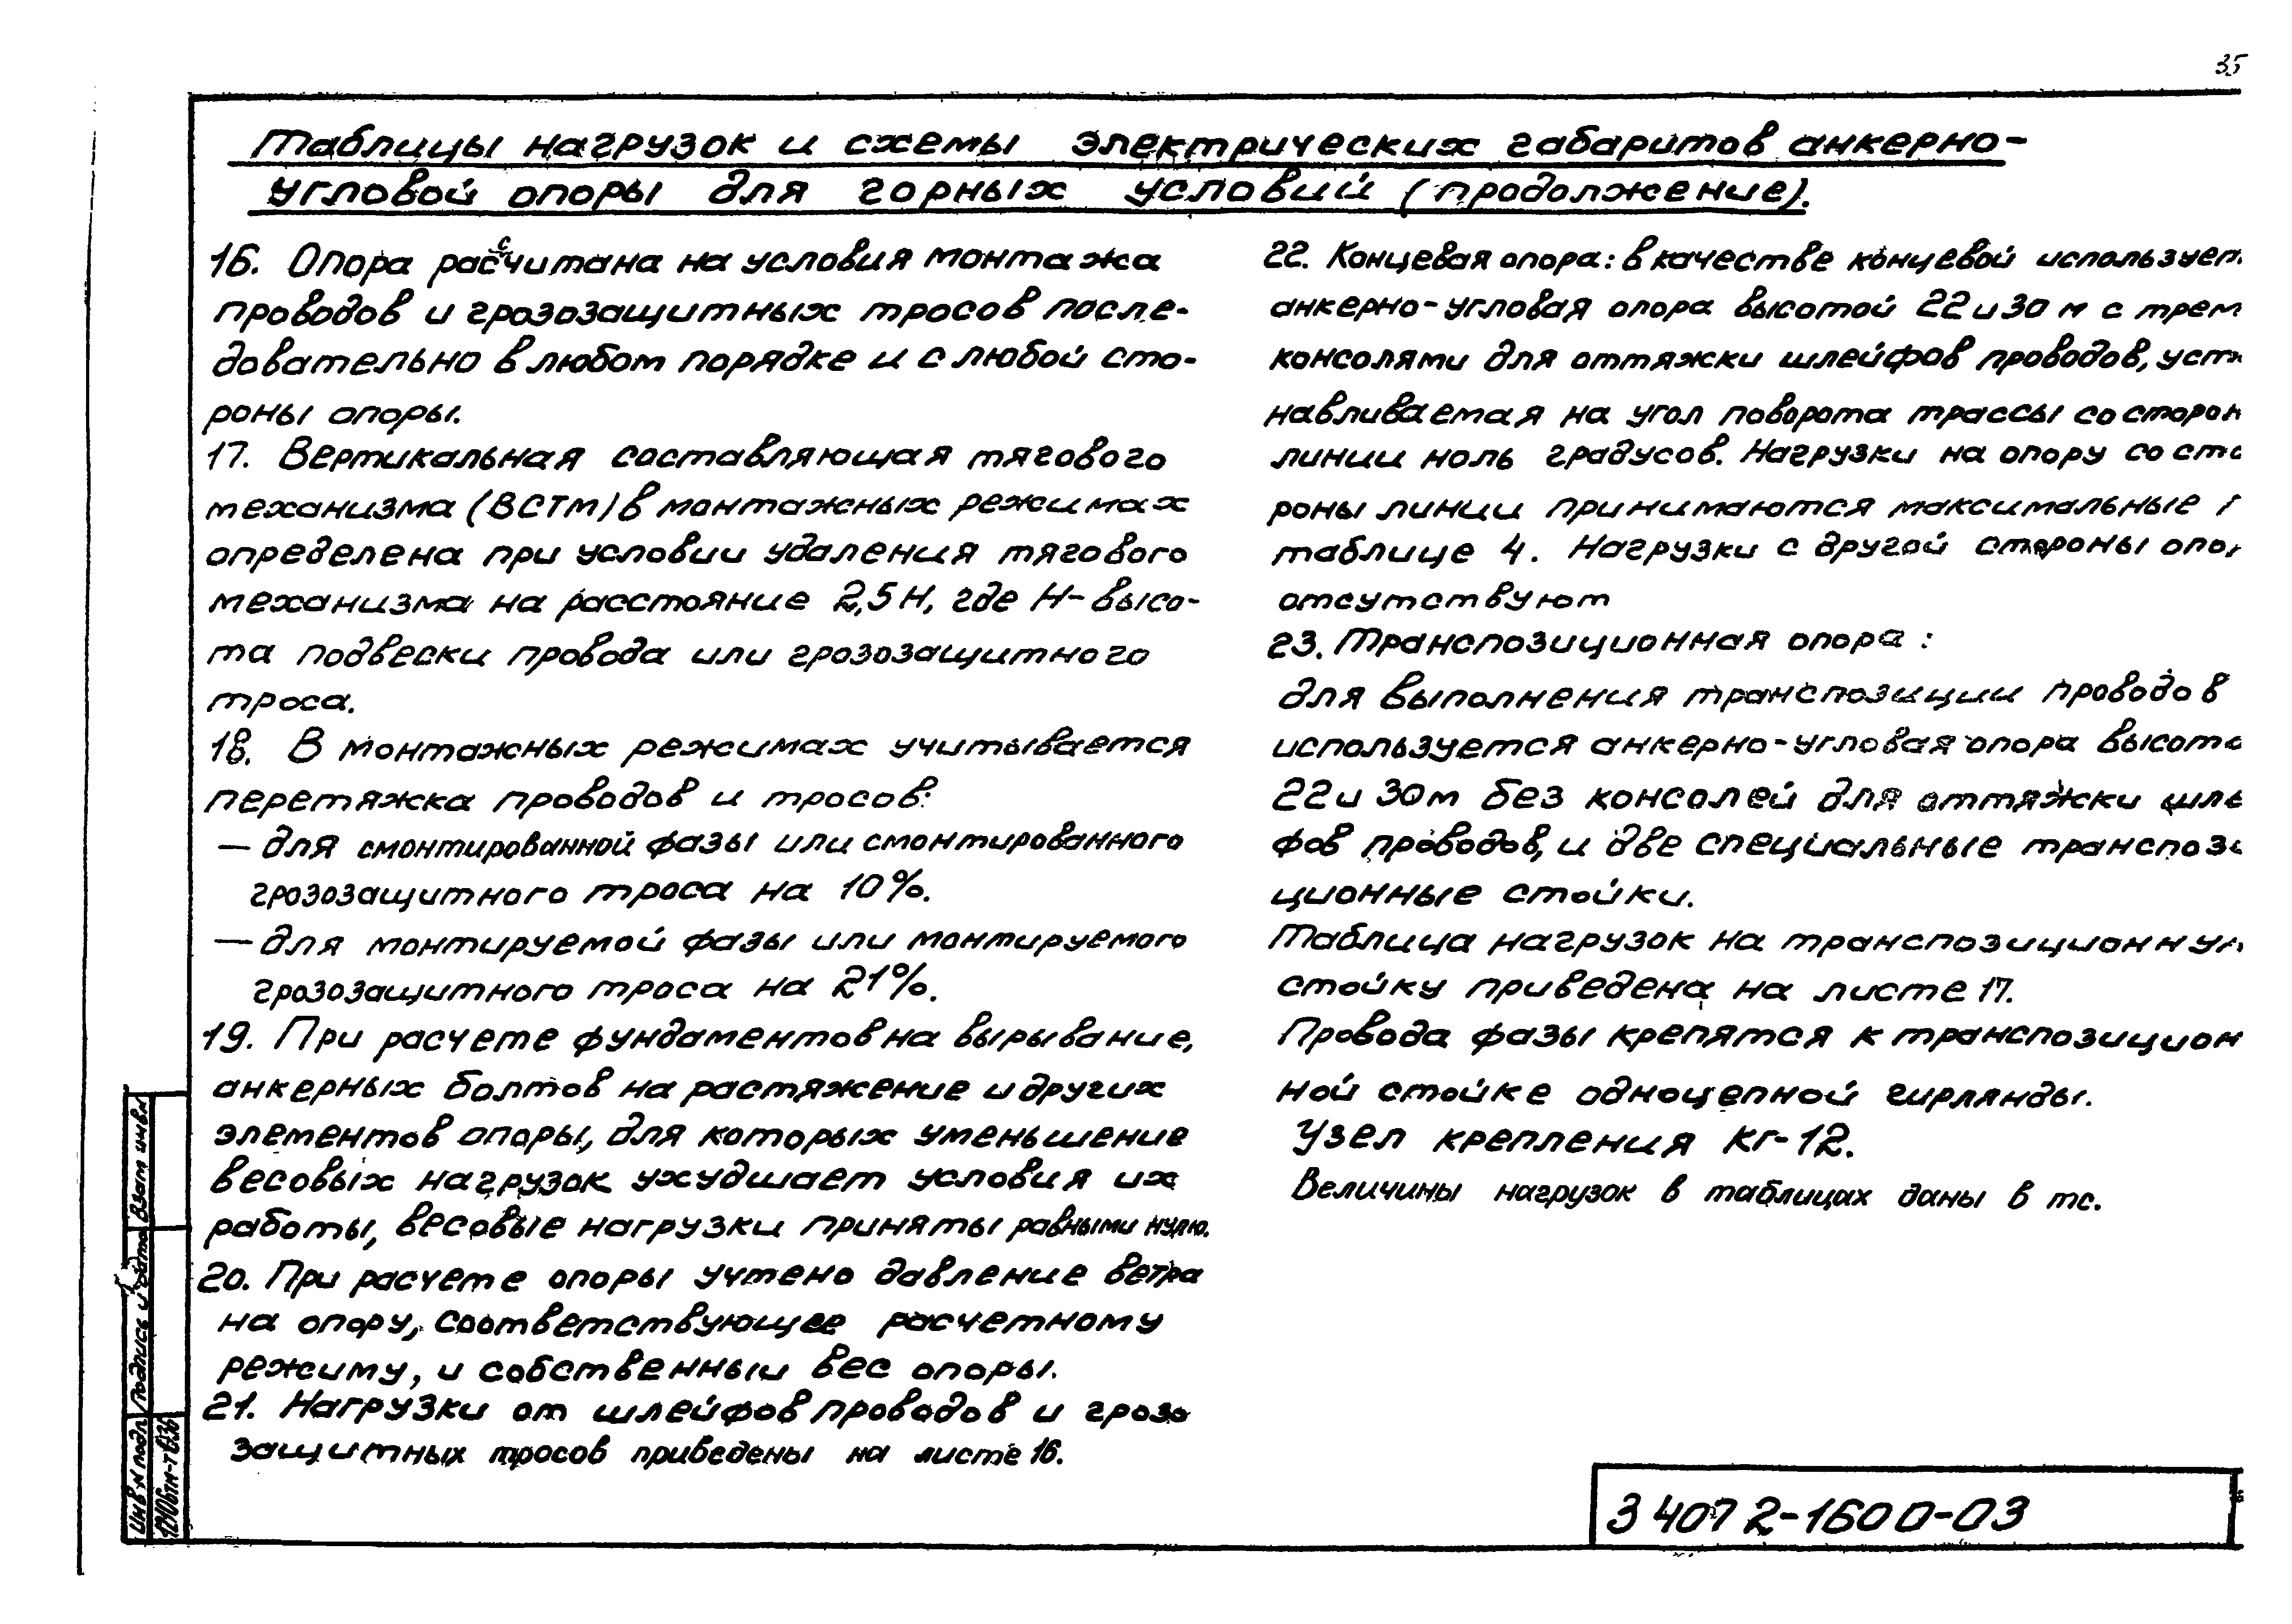 35
Таблицы нагрузок и схемы электрических габаритов анкерно-
угловой опоры для горных условий (продолжение).
16. Опора рассчитана на условия монтажа
проводов и грозозащитных тросов после-
довательно в любом порядке и с любой сто-
роны опоры.
17. Вертикальная составляющая тягового
механизма (ВСТМ) в монтажных режимах
определена при условии удаления тягового
механизма на расстояние 2,5Н, где Н-высо-
та подвески провода или грозозащитного
троса.
18. В монтажных режимах учитывается
перетяжка проводов и тросов:
— для смонтированной фазы или смонтированного
грозозащитного троса на 10%.
— для монтируемой фазы или монтируемого
грозозащитного троса на 21%.
19. При расчете фундаментов на вырывание,
анкерных болтов на растяжение и других
элементов опоры, для которых уменьшение
весовых нагрузок ухудшает условия их
работы, весовые нагрузки приняты равными нулю.
20. При расчете опоры учтено давление ветра
на опору, соответствующее расчетному
режиму, и собственный вес опоры.
21. Нагрузки от шлейфов проводов и грозо
защитных тросов приведены на листе 16.
22. Концевая опора: в качестве концевой использует
анкерно-угловая опора высотой 22 и 30 м с трем
консолями для оттяжки шлейфов проводов, уст
навливаемая на угол поворота трассы со сторон
линии ноль градусов. Нагрузки на опору со сто
роны линии принимаются максимальные
таблице 4. Нагрузки с другой стороны опо
отсутствуют
23. Транспозиционная опора:
для выполнения транспозиции проводов
используется анкерно-угловая опора высото
22 и 30м без консолей для оттяжки шле
фов проводов, и две специальные транспози
ционные стойки.
Таблица нагрузок на транспозиционную
стойку приведена на листе 17.
Провода фазы крепятся к транспозицион
ной стойке одноцепной гирлянды.
Узел крепления КГ-12.
Величины нагрузок в таблицах даны в тс.
Инв N подл
Подпись и дата
Взам инв N
3 407 2-160 0-03